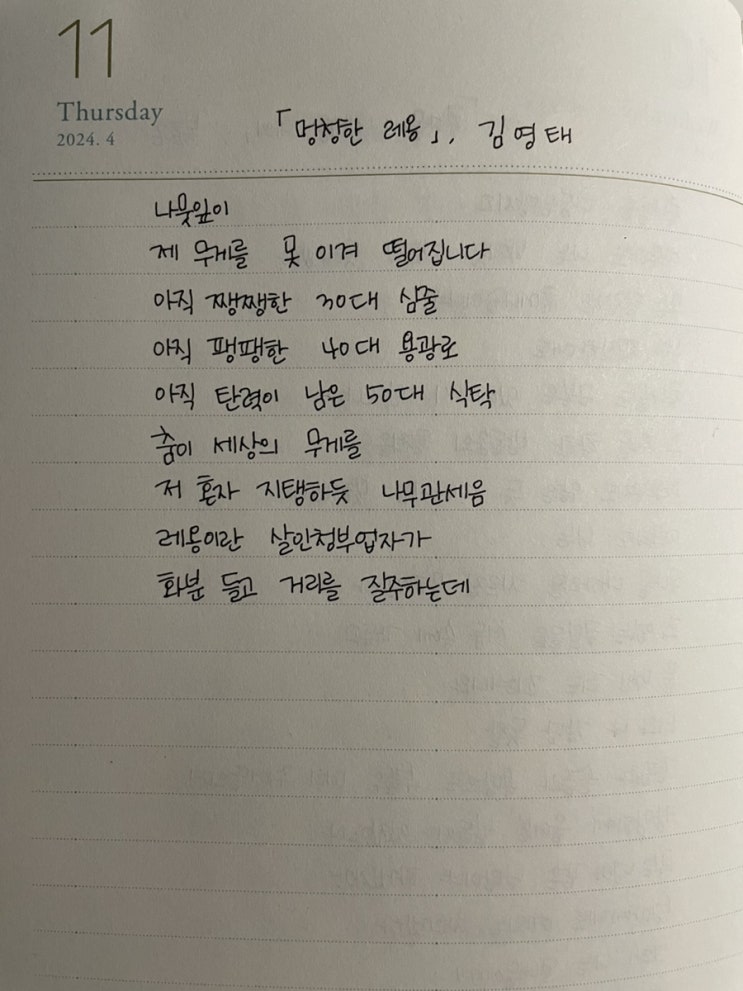 11
Thursday
2024. 4
「멍청한 레옹」, 김영태
나뭇잎이
제 무게를 못 이겨 떨어집니다
아직 쨍쨍한 30대 심줄
아직 팽팽한 40대 용광로
아직 탄력이 남은 50대 식탁
춤이 세상의 무게를
저 혼자 지탱하듯 나무관세음
레옹이란 살인청부업자가
화분 들고 거리를 질주하는데